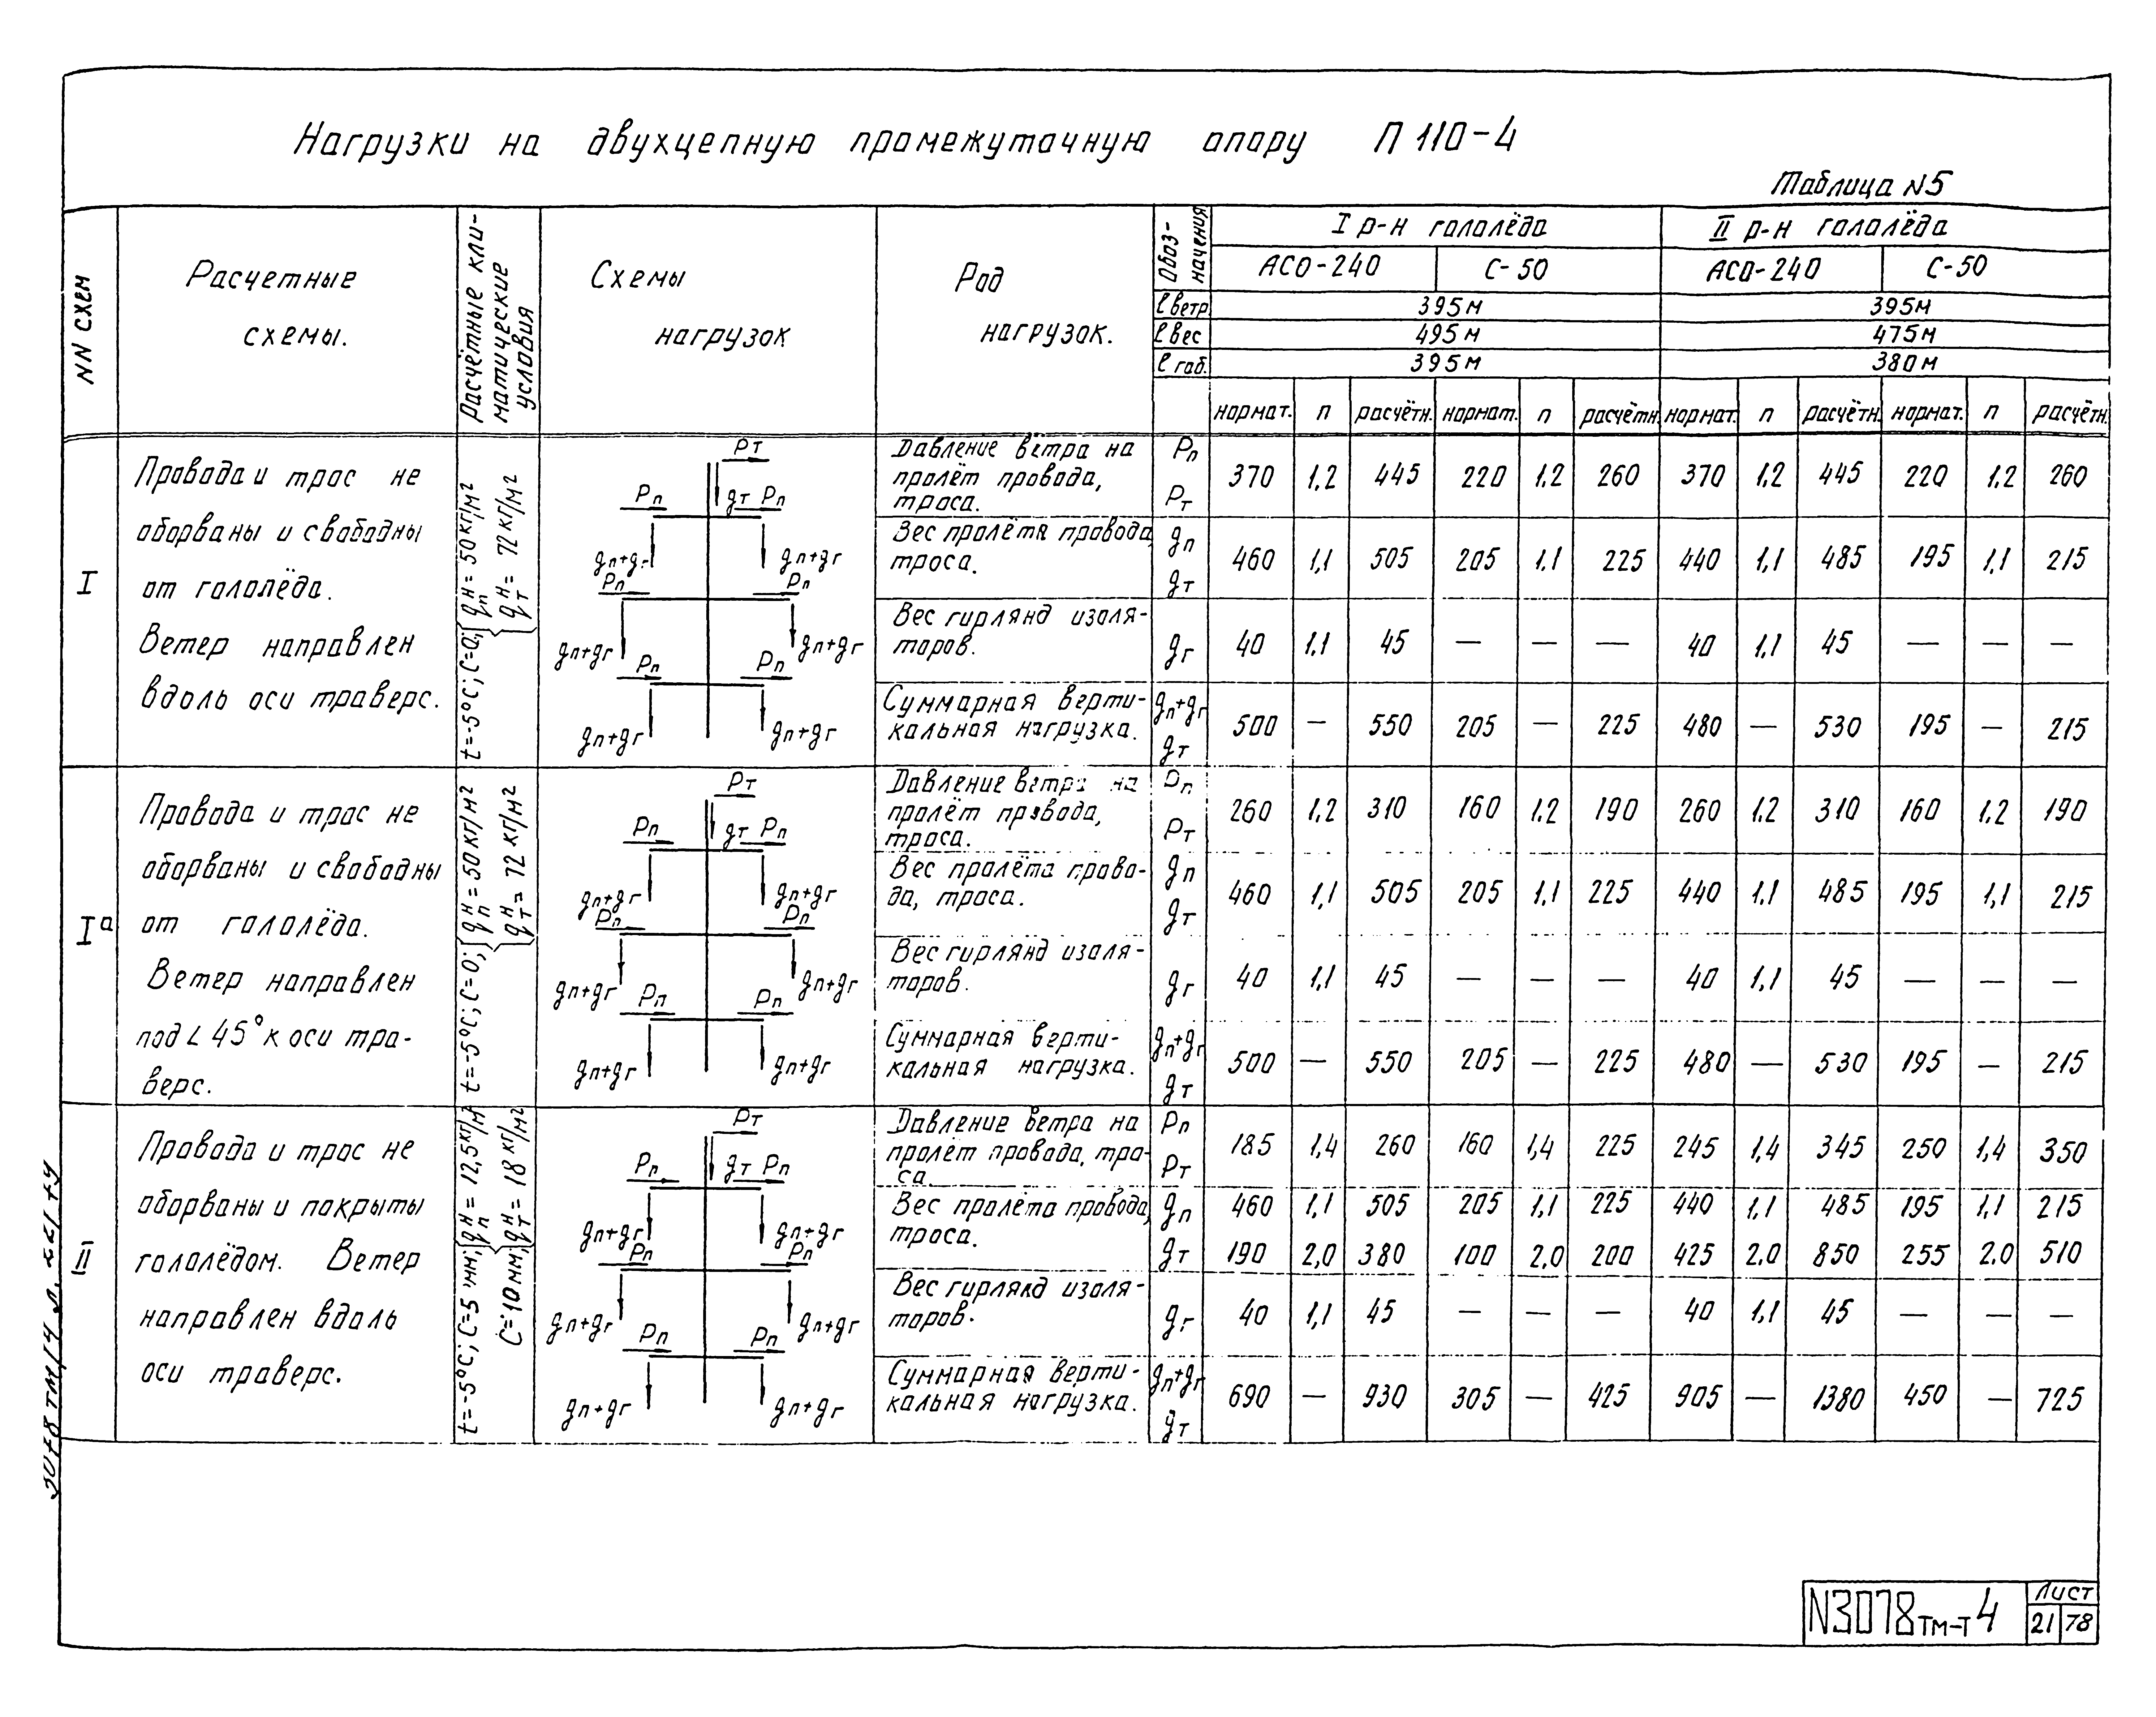 Нагрузки на двухцепную промежуточную опору П 110-4
Таблица N5
NN схем
Расчетные схемы.
Расчётные климатические условия
Схемы нагрузок
Род нагрузок.
Обозначения
I р-н гололёда
II р-н гололёда
АСО-240 С-50 АСО-240 С-50
ℓ ветр. 395м 395м
ℓ вес 495м 475м
ℓ габ. 395м 380м
нормат. n расчётн. нормат. n расчётн. нормат. n расчётн. нормат. n расчётн.
I
Провода и трос не
оборваны и свободны
от гололёда.
Ветер направлен
вдоль оси траверс.
t=-5°C; C=0; qпᴴ = 50 кг/м²
qтᴴ = 72 кг/м²
Pт
Pп gт Pп
gп+gг gп+gг
Pп Pп
gп+gг gп+gг
Pп Pп
gп+gг gп+gг
Давление ветра на
пролёт провода,
троса.
Pп
Pт
370 1,2 445 220 1.2 260 370 1,2 445 220 1.2 260
Вес пролёта провода,
троса.
gп
gт
460 1,1 505 205 1.1 225 440 1,1 485 195 1,1 215
Вес гирлянд изоля-
торов.
gг
40 1.1 45 — — — 40 1,1 45 — — —
Суммарная верти-
кальная нагрузка.
gп+gг
gт
500 — 550 205 — 225 480 — 530 195 — 215
Iа
Провода и трос не
оборваны и свободны
от гололёда.
Ветер направлен
под ∠ 45° к оси тра-
верс.
t=-5°C; C=0; qпᴴ = 50 кг/м²
qтᴴ = 72 кг/м²
Pт
Pп gт Pп
gп+gг gп+gг
Pп Pп
gп+gг gп+gг
Pп Pп
gп+gг gп+gг
Давление ветра на
пролёт провода,
троса.
Pп
Pт
260 1.2 310 160 1.2 190 260 1.2 310 160 1.2 190
Вес пролёта прово-
да, троса.
gп
gт
460 1,1 505 205 1.1 225 440 1.1 485 195 1,1 215
Вес гирлянд изоля-
торов.
gг
40 1.1 45 — — — 40 1,1 45 — — —
Суммарная верти-
кальная нагрузка.
gп+gг
gт
500 — 550 205 — 225 480 — 530 195 — 215
II
Провода и трос не
оборваны и покрыты
гололёдом. Ветер
направлен вдоль
оси траверс.
t=-5°C; C=5 мм; qпᴴ = 12,5 кг/м²
C=10 мм; qтᴴ = 18 кг/м²
Pт
Pп gт Pп
gп+gг gп+gг
Pп Pп
gп+gг gп+gг
Pп Pп
gп+gг gп+gг
Давление ветра на
пролёт провода, тро-
са.
Pп
Pт
185 1,4 260 160 1,4 225 245 1,4 345 250 1,4 350
Вес пролёта провода,
троса.
gп 460 1,1 505 205 1,1 225 440 1,1 485 195 1.1 215
gт 190 2,0 380 100 2.0 200 425 2.0 850 255 2.0 510
Вес гирлянд изоля-
торов.
gг
40 1,1 45 — — — 40 1,1 45 — — —
Суммарная верти-
кальная нагрузка.
gп+gг
gт
690 — 930 305 — 425 905 — 1380 450 — 725
N3078тм-т4
Лист
21 78